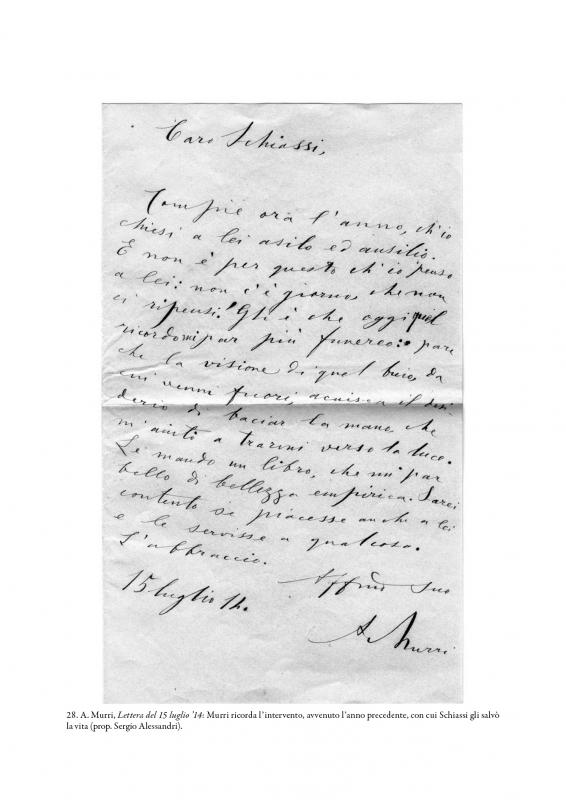 Caro Schiassi,
Compie ora l'anno, ch'io
chiesi a lei asilo ed ausilio.
E non è per questo ch'io penso
a lei: non c'è giorno, che non
ci ripensi! Gli è che oggi quel
ricordo mi par più funereo: e pare
che la visione di quel buio, da
cui venni fuori, acuisca il desi
derio di baciar la mano che
m'aiutò a trarmi verso la luce.
Le mando un libro, che mi par
bello di bellezza empirica. Sarei
contento se piacesse anche a lei
e le servisse a qualcosa.
L'abbraccio.
Affmo suo
15 luglio 14.
A. Murri
28. A. Murri, Lettera del 15 luglio '14: Murri ricorda l'intervento, avvenuto l'anno precedente, con cui Schiassi gli salvò
la vita (prop. Sergio Alessandri).